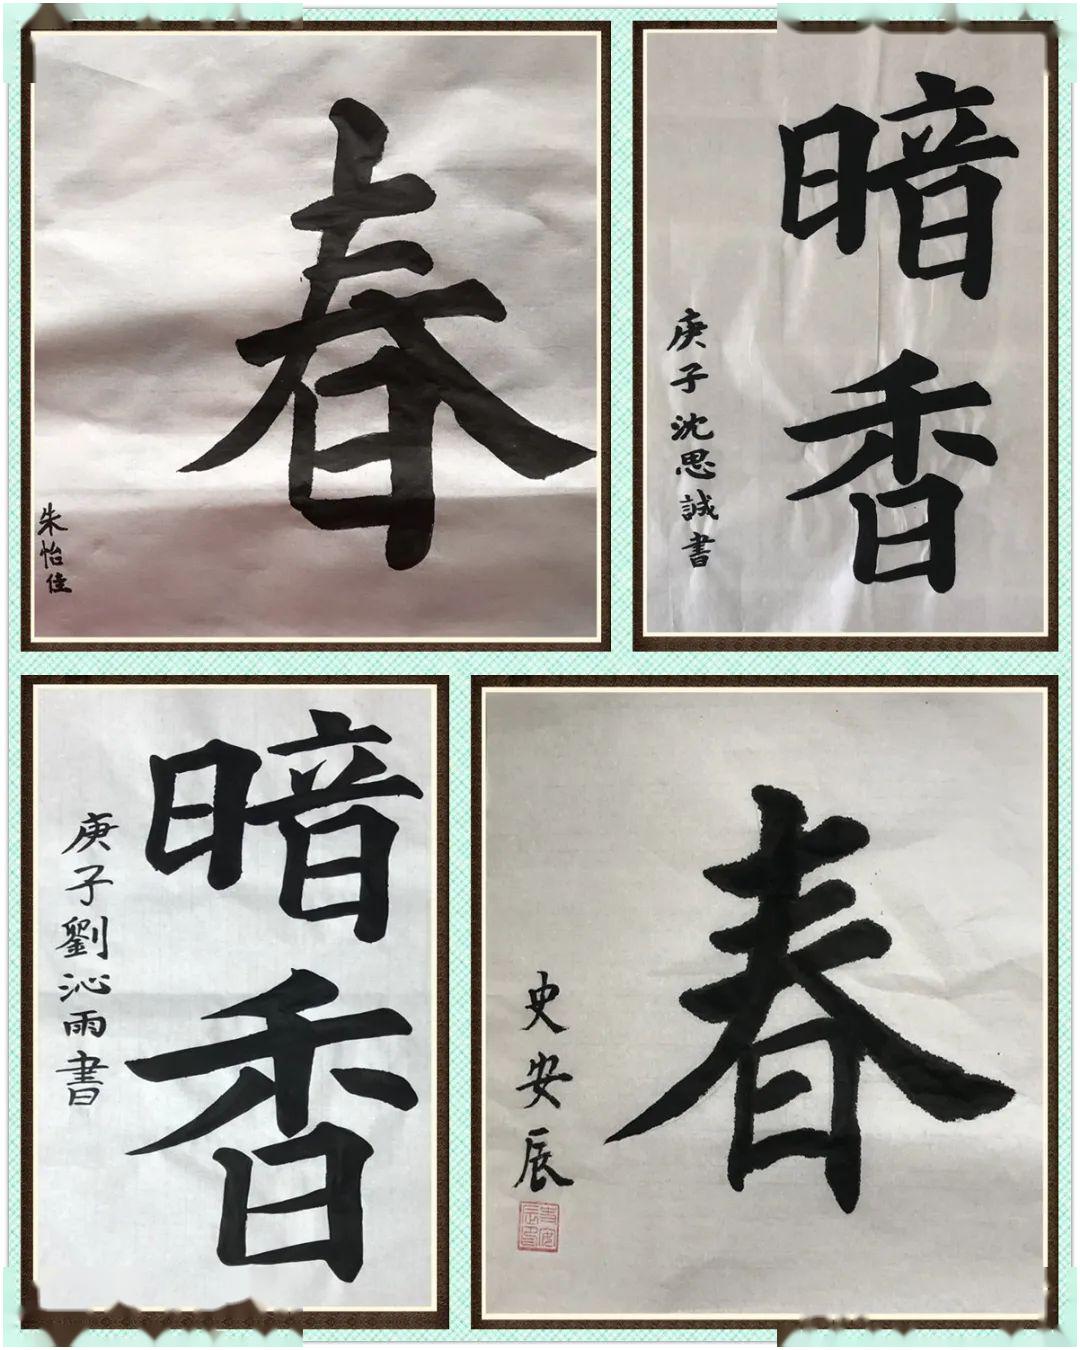 春
朱怡佳
暗香
庚子沈思誠書
暗香
庚子劉沁雨書
春
史安辰